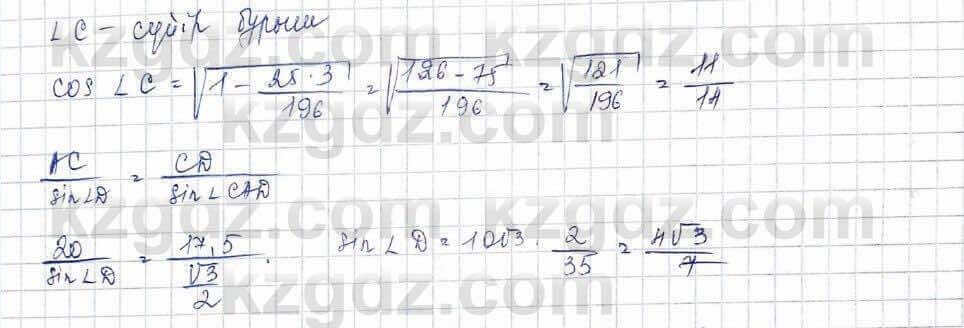 ∠C – сүйір бұрыш
cos ∠C = √(1 − (25·3)/196) = √((126 − 75)/196) = √(121/196) = 11/14
AC/sin∠D = CD/sin∠CAD
20/sin∠D = 17,5/(√3/2). sin∠D = 10√3 · 2/35 = 4√3/7
kzgdz.com kzgdz.com
kzgdz.com kzgdz.com
kzgdz.com kzgdz.com
kzgdz.com kzgdz.com